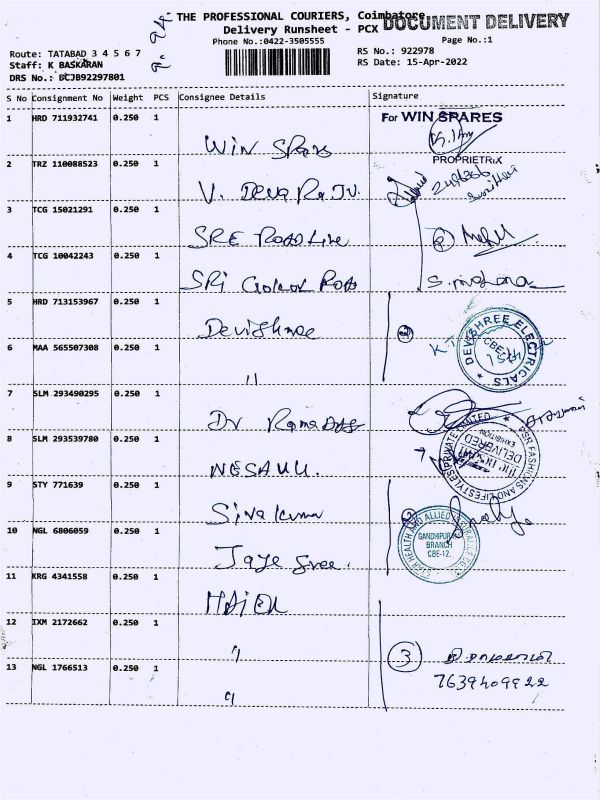 THE PROFESSIONAL COURIERS, Coimbatore
DOCUMENT DELIVERY
Delivery Runsheet - PCX
Phone No.:0422-3505555
Page No.:1
Route: TATABAD 3 4 5 6 7
Staff: K BASKARAN
DRS No.: BCJB92297801
RS No.: 922978
RS Date: 15-Apr-2022
S No Consignment No Weight PCS Consignee Details Signature
1 HRD 711932741 0.250 1 WIN Spares
For WIN SPARES
PROPRIETRIX
2 TRZ 110088523 0.250 1 V. Deva Raju.
3 TCG 15021291 0.250 1 SRE Road Line
4 TCG 10042243 0.250 1 SRi Gokul Road
5 HRD 713153967 0.250 1 Devishree
DEVI SHREE ELECTRICALS
CBE-12
6 MAA 565507308 0.250 1 "
7 SLM 293490295 0.250 1 Dr Rama Dass
8 SLM 293539780 0.250 1 NESAVU.
SR FASHIONS AND LIFESTYLES PRIVATE LIMITED
DELIVERED
9 STY 771639 0.250 1 Siva Kumar
10 NGL 6806059 0.250 1 Jaye Sree.
STAR HEALTH AND ALLIED
GANDHIPURAM
BRANCH
CBE-12.
11 KRG 4341558 0.250 1 HAIER
12 IXM 2172662 0.250 1 "
3
7639409922
13 NGL 1766513 0.250 1 "